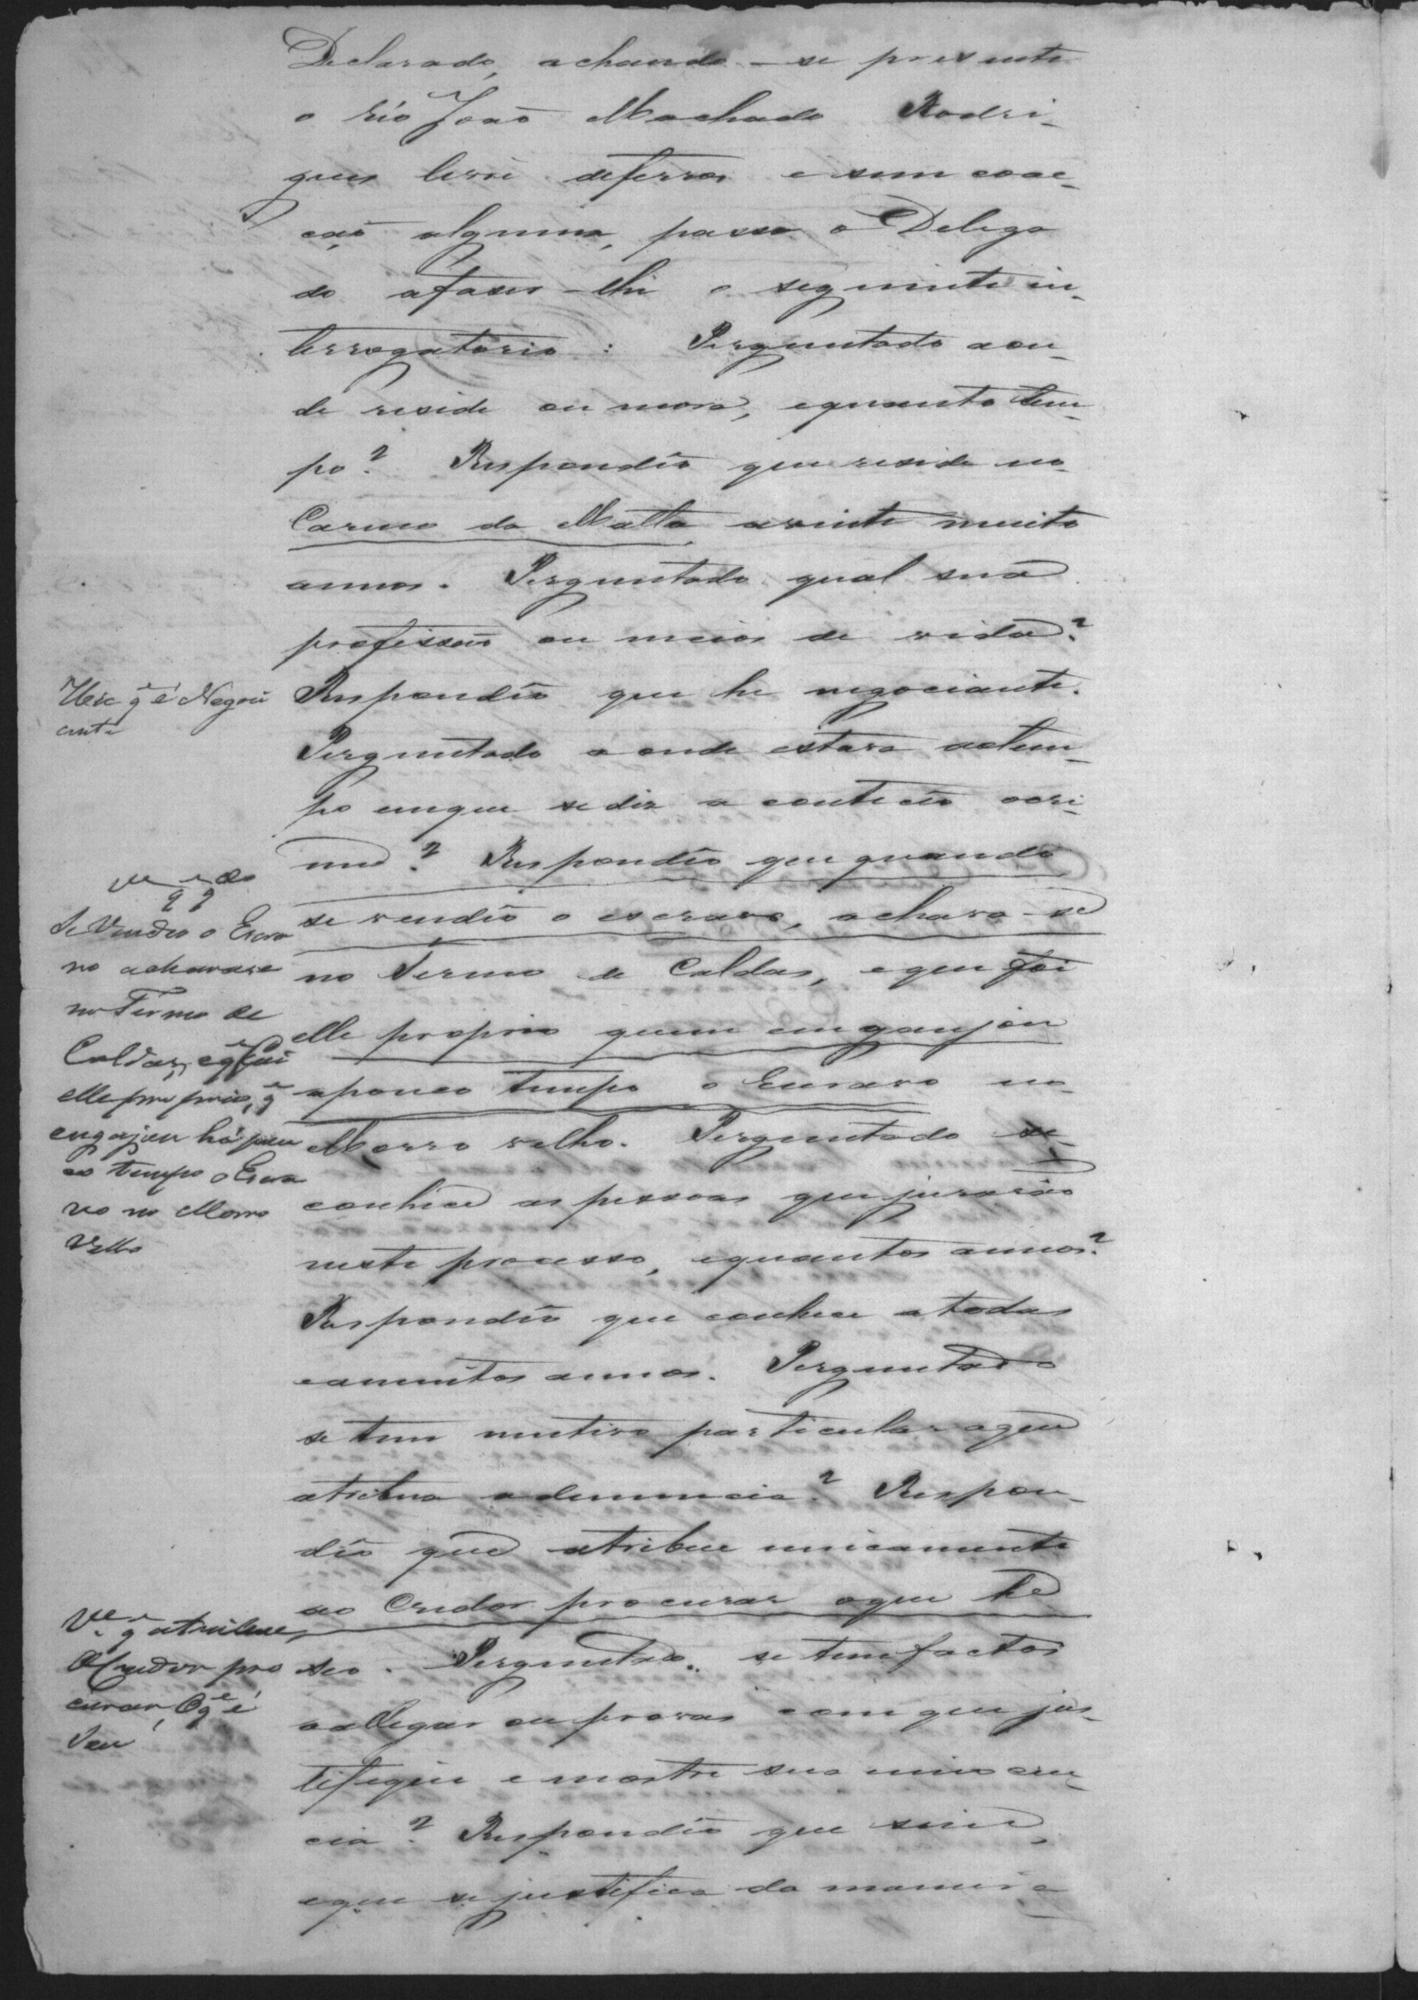 Declarado, achando-se presente
o réo João Machado Rodri-
gues livre deferros e sem coac-
ção alguma, passa o Delega
do afaser-lhe o seguinte in-
terrogatorio: Perguntado aon-
de reside ou mora, equanto tem-
po? Respondêo que reside no
Carmo da Matta avinte muito
annos. Perguntado qual sua
profissão ou meios de vida?
Respondêo que he negociante.
Perguntado aonde estava aotem-
po emque sediz aconteceo ocri-
me? Respondêo que quando
se vendêo o escravo, achava-se
no Termo de Caldas, eque foi
elle proprio quem emganjou
apouco tempo o Escravo no
Morro velho. Perguntado se
conhece as pessoas que jurarão
neste processo, equantos annos?
Respondêo que conhece atodas
eamuitos annos. Perguntado
se tem mutivo particular aque
atribua adenuncia? Respon-
dêo que atribue unicamente
ao Credor procurar oque he
seo. Perguntado. se temfactos
aallegar ou provas comque jus-
tifique e mostre sua innocen-
cia? Respondêo que sim,
eque sejustifica da maneira
q̃ é Negoci
ante
se Vendeo o Escra
vo achavase
no Termo de
Caldas, e q̃ foi
elle proprio, q̃
engajou há pou
co tempo o Escra
vo no Morro
Velho
q̃ atribue
O Credor pro
curar, O q̃ é
Seu